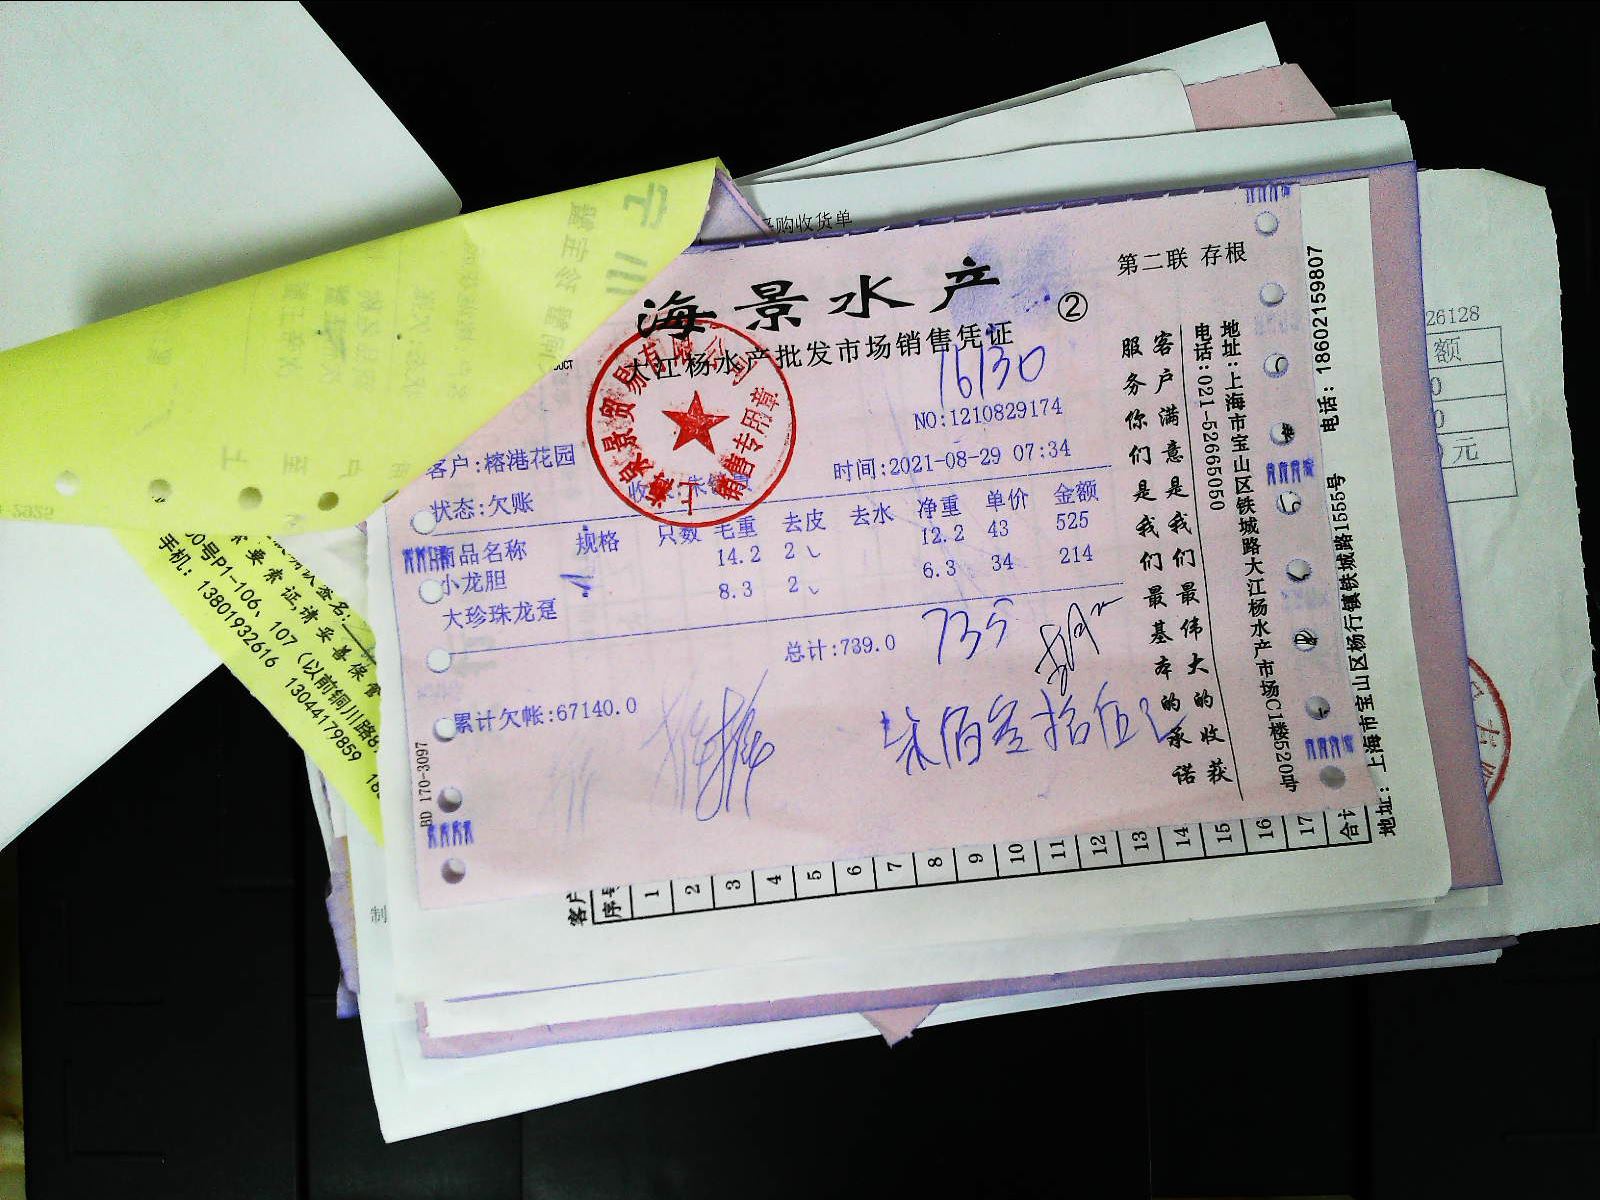 购收货单
海景水产
②
第二联 存根
大江杨水产批发市场销售凭证
16130
NO:1210829174
客户:榕港花园
时间:2021-08-29 07:34
状态:欠账
商品名称 规格 只数 毛重 去皮 去水 净重 单价 金额
小龙胆 14.2 2 12.2 43 525
大珍珠龙趸 8.3 2 6.3 34 214
总计:739.0
735
累计欠帐:67140.0
柒佰叁拾伍元
BD 170-3097
客户满意是我们最伟大的收获
服务你们是我们最基本的承诺
地址:上海市宝山区铁城路大江杨水产市场C1楼520号
电话:021-52665050
电话:18602159807
地址:上海市宝山区杨行镇铁城路1555号
销售专用章
客户
序号 1 2 3 4 5 6 7 8 9 10 11 12 13 14 15 16 17 合计
26128
额
元
签名:
要索证,请妥善保管
00号P1-106、107(以前铜川路8
手机:13801932616 13044179859
制